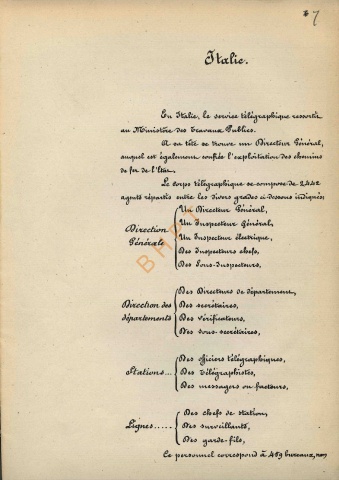 7
Italie.
En Italie, le service télégraphique ressortit
au Ministère des Travaux Publics.
A sa tête se trouve un Directeur Général,
auquel est également confiée l'exploitation des chemins
de fer de l'Etat.
Le corps télégraphique se compose de 2442
agents répartis entre les divers grades ci-dessous indiqués:
Direction Générale
Un Directeur Général,
Un Inspecteur Général,
Un Inspecteur électrique,
Des Inspecteurs chefs,
Des Sous-Inspecteurs,
Direction des départements
Des Directeurs de département,
Des secrétaires,
Des vérificateurs,
Des sous-secrétaires,
Stations...
Des officiers télégraphiques,
Des Télégraphistes,
Des messagers ou facteurs,
Lignes.....
Des chefs de station,
Des surveillants,
Des garde-fils,
Ce personnel correspond à 469 bureaux, non